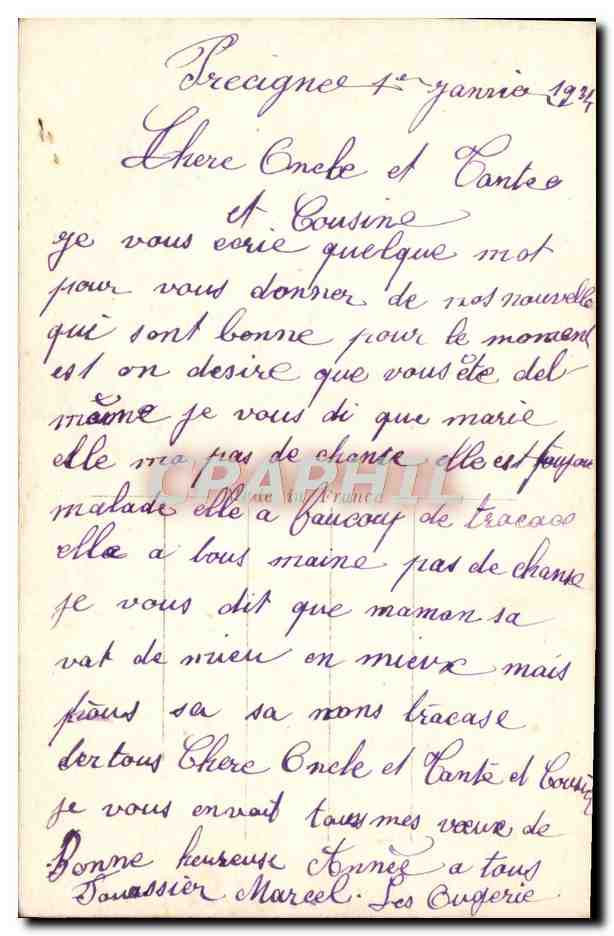 Precigne 1er janvie 1934
Chere Oncle et Tante
et Cousine
je vous ecrie quelque mot
pour vous donner de nos nouvelle
qui sont bonne pour le moment
est on desire que vous ête del
même je vous di que marie
elle ma pas de chanse elle est toujou
CPARPHIL
malade elle a baucoup de tracase
elle a tous maine pas de chanse
je vous dit que maman sa
vat de mieu en mieux mais
pous sa sa nous tracase
der tous Chere Oncle et Tante et Cousin
je vous envait tous mes vœux de
Bonne heureuse Année a tous
Marcel. Les Ougerie